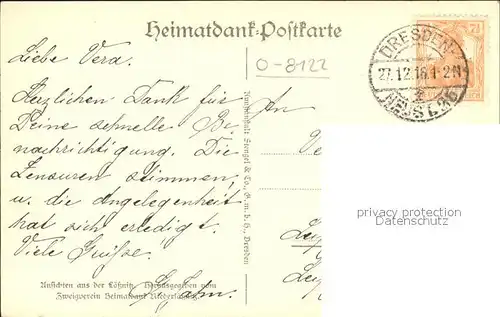 Heimatdank-Postkarte
O-8122
DRESDEN-
27.12.16. 1-2 N
NEUST. 26
7½
Liebe Vera.
Herzlichen Dank für
Deine schnelle Be-
nachrichtigung. Die
Zensuren stimmen,
u. die Angelegenheit
hat sich erledigt.
Viele Grüsse.
An
Kunstanstalt Stengel & Co., G.m.b.H., Dresden
privacy protection
Datenschutz
Ansichten aus der Lößnitz. Herausgegeben vom
Zweigverein Heimatdank